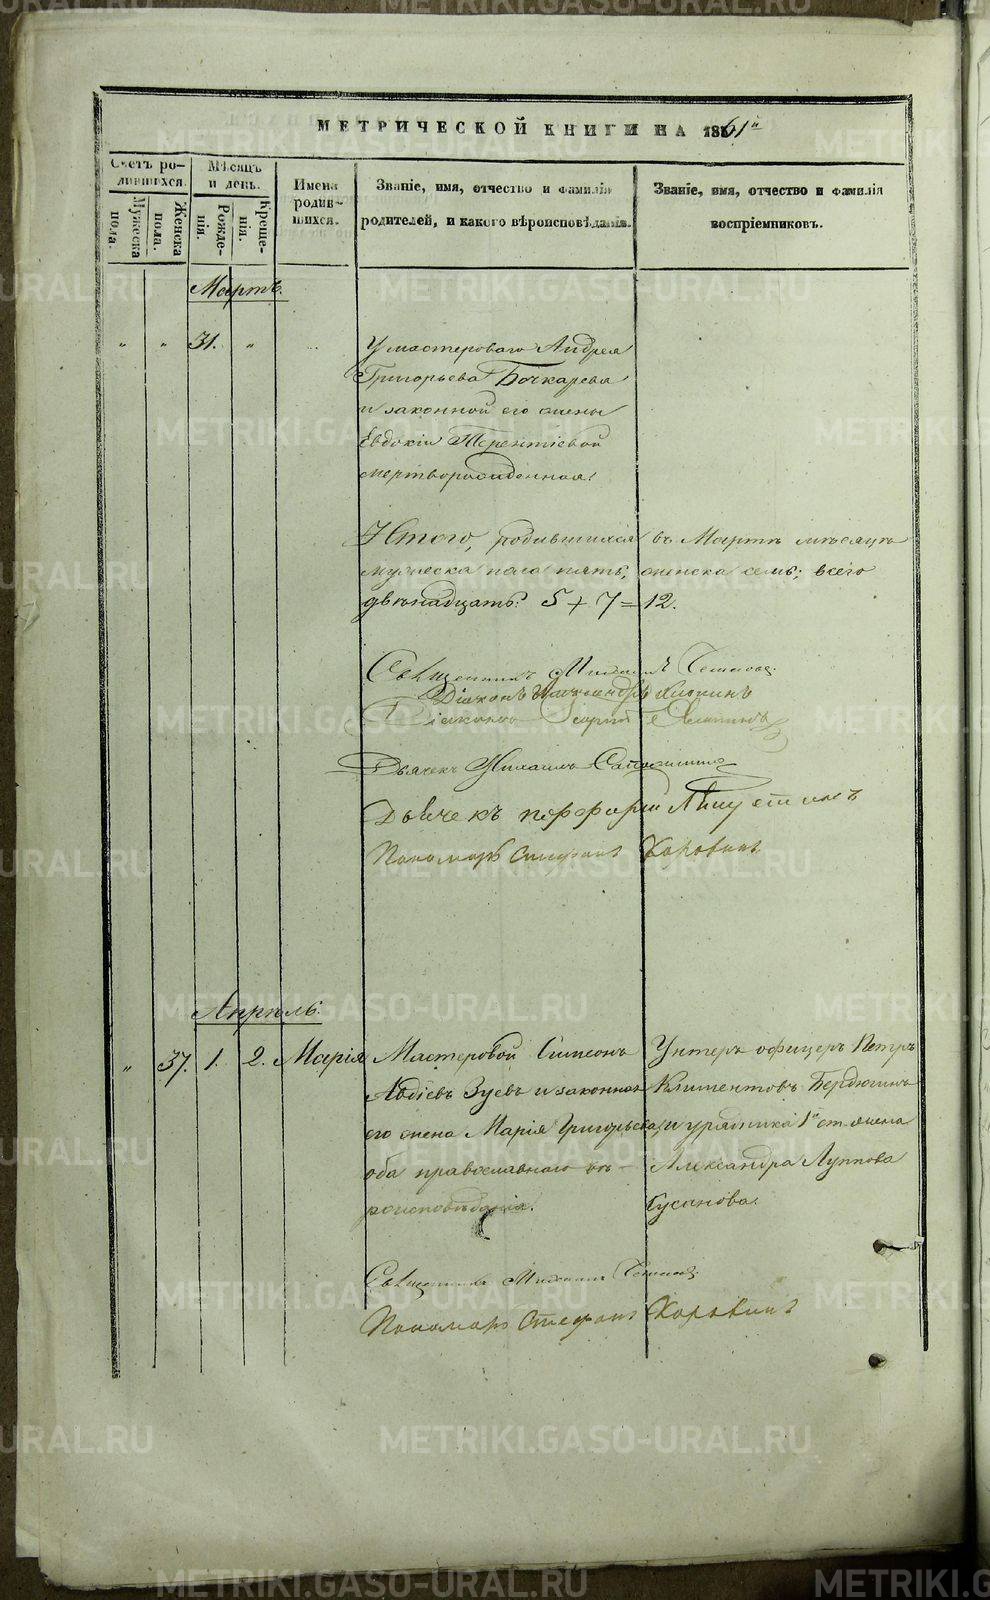 МЕТРИЧЕСКОЙ КНИГИ НА 1861й
Счетъ ро-
дившихся.
Мужеска
пола.
Женска
пола.
Мѣсяцъ
и день.
Рожде-
нія.
Креще-
нія.
Имена
родив-
шихся.
Званіе, имя, отчество и фамилія
родителей, и какого вѣроисповѣданія.
Званіе, имя, отчество и фамилія
воспріемниковъ.
Мартъ.
" " 31. "
У мастероваго Андрея
Григорьева Бочкарева
и законной его жены
Евдокіи Терентіевой
мертворожденная.
Итого, родившихся въ Мартѣ мѣсяцѣ
мужеска пола пять, женска семь; всего
двѣнадцать: 5 + 7 = 12.
Священникъ Михаилъ
Діаконъ Александръ
Дьячекъ Михаилъ
Дьячекъ Порфирій
Пономарь Стефанъ Хоровинъ
Апрѣль:
" 37. 1. 2. Марія
Мастеровой Симеонъ
Авдіевъ Зуевъ и законная
его жена Марія Григорьева,
оба православнаго вѣ-
роисповѣданія.
Унтеръ офицеръ Петръ
Климентовъ Бердюгинъ
и урядника 1й ст. жена
Александра Луппова
Гусанова.
Священникъ Михаилъ
Пономарь Стефанъ Хоровинъ
METRIKI.GASO-URAL.RU